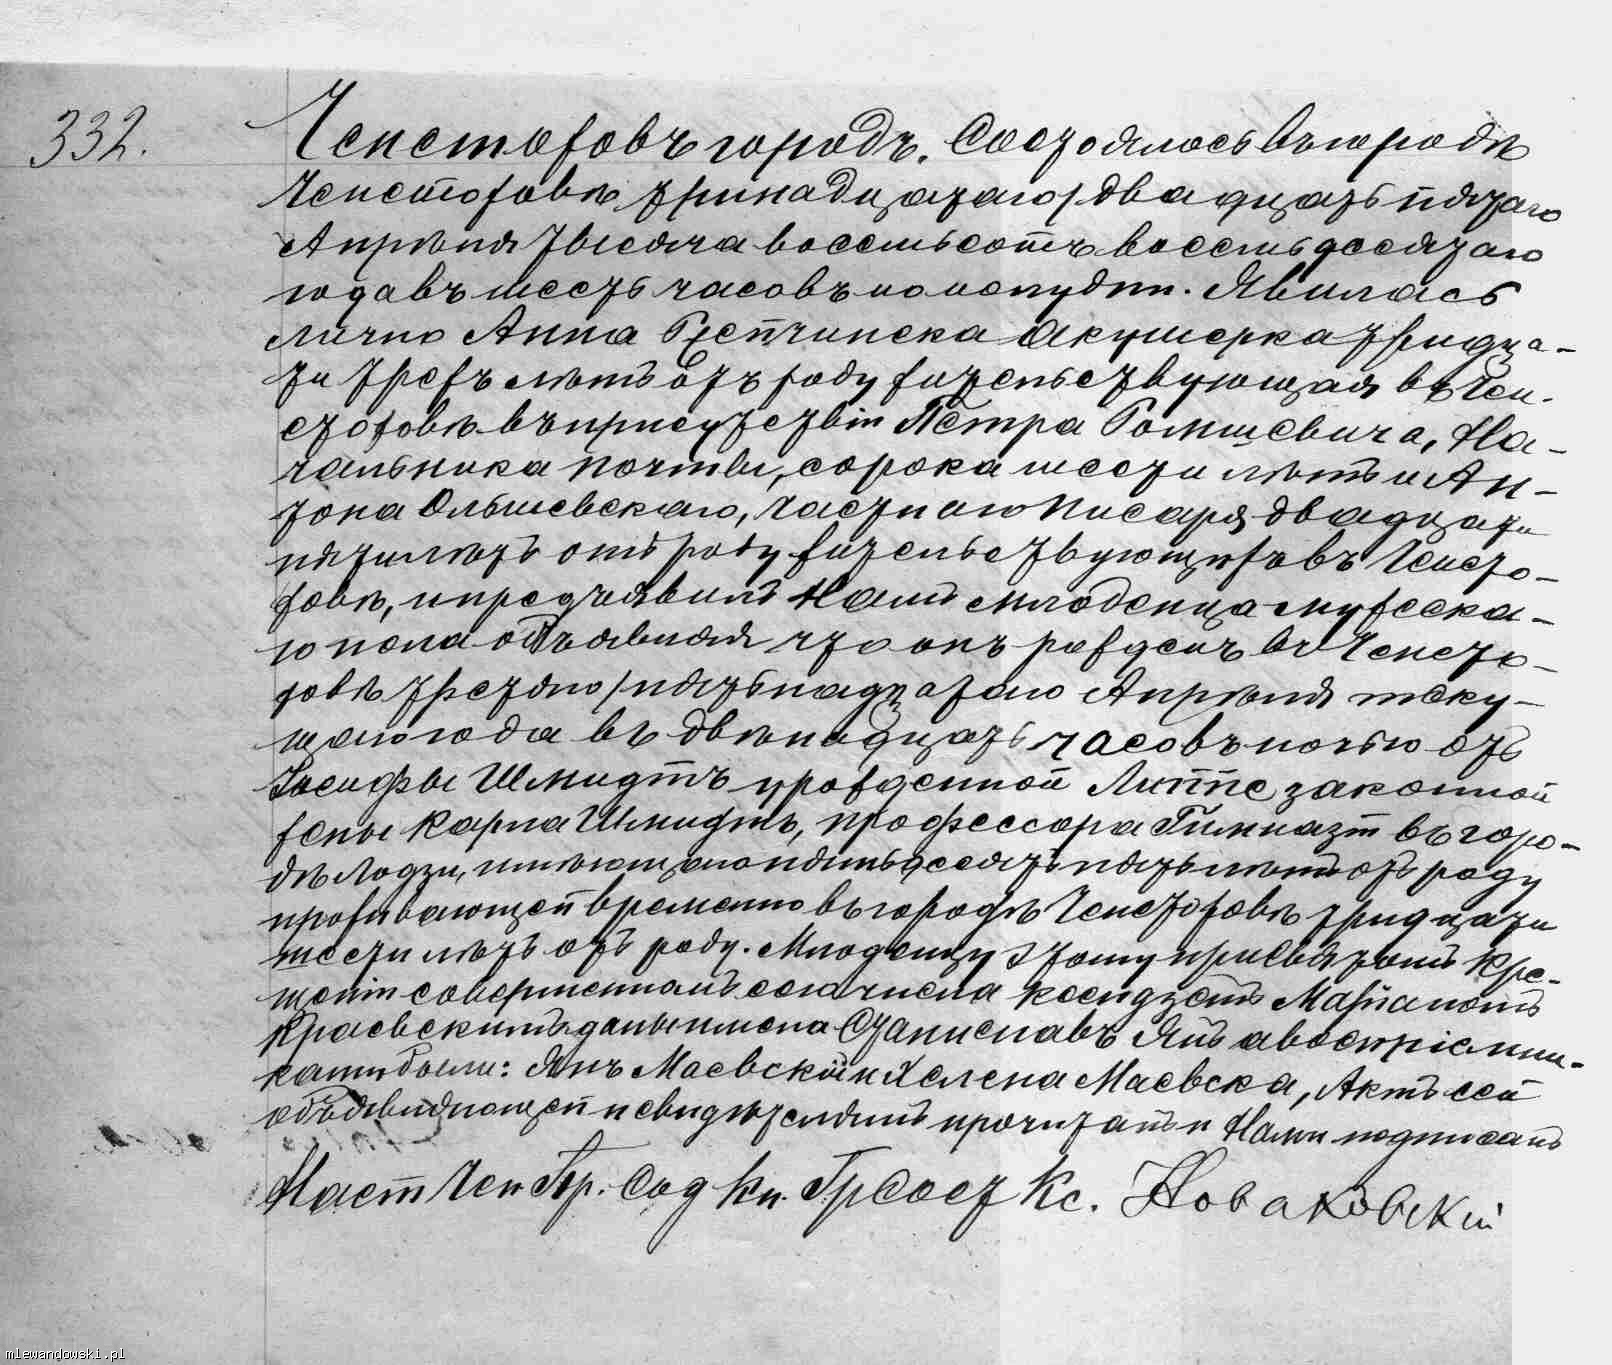 332.
Ченстоховъ городъ. Состоялось въ городѣ
Ченстоховѣ тринадцатаго/двадцать пятаго
Апрѣля тысяча восемьсотъ восемьдесятаго
года въ шесть часовъ по полудни. Явилась
лично Анна акушерка тридца-
ти трехъ лѣтъ отъ роду жительствующая въ Чен-
стоховѣ въ присутствіи Петра Ромишевича, На-
чальника почты, сорока шести лѣтъ и Ан-
тона Ольшевскаго, частнаго писаря двадцати
пяти лѣтъ отъ роду жительствующихъ въ Ченсто-
ховѣ, и предъявилъ Намъ младенца мужеска-
го пола объявляя что онъ рожденъ въ Ченсто-
ховѣ третяго/пятьнадцатаго Апрѣля теку-
щаго года въ двѣнадцать часовъ ночью отъ
Іосифы Шмидтъ урожденной Липпе законной
жены Карла Шмидтъ, профессора Гимназіи въ горо-
дѣ Лодзи, имѣющаго пятьдесятъ пять лѣтъ отъ роду
проживающей временно въ городѣ Ченстоховѣ тридцати
шести лѣтъ отъ роду. Младенцу этому при святомъ кре-
щеніи совершенномъ сего числа ксендзомъ Маріаномъ
Краевскимъ даны имена Станиславъ Янъ а воспріемни-
ками были: Янъ Маевскій и Хелена Маевска, Актъ сей
объявляющей и свидѣтелямъ прочитанъ и Нами подписанъ
Наст Чен Пр. Сод Кн. Гр Сост Кс. Новаковскій
mlewandowski.pl